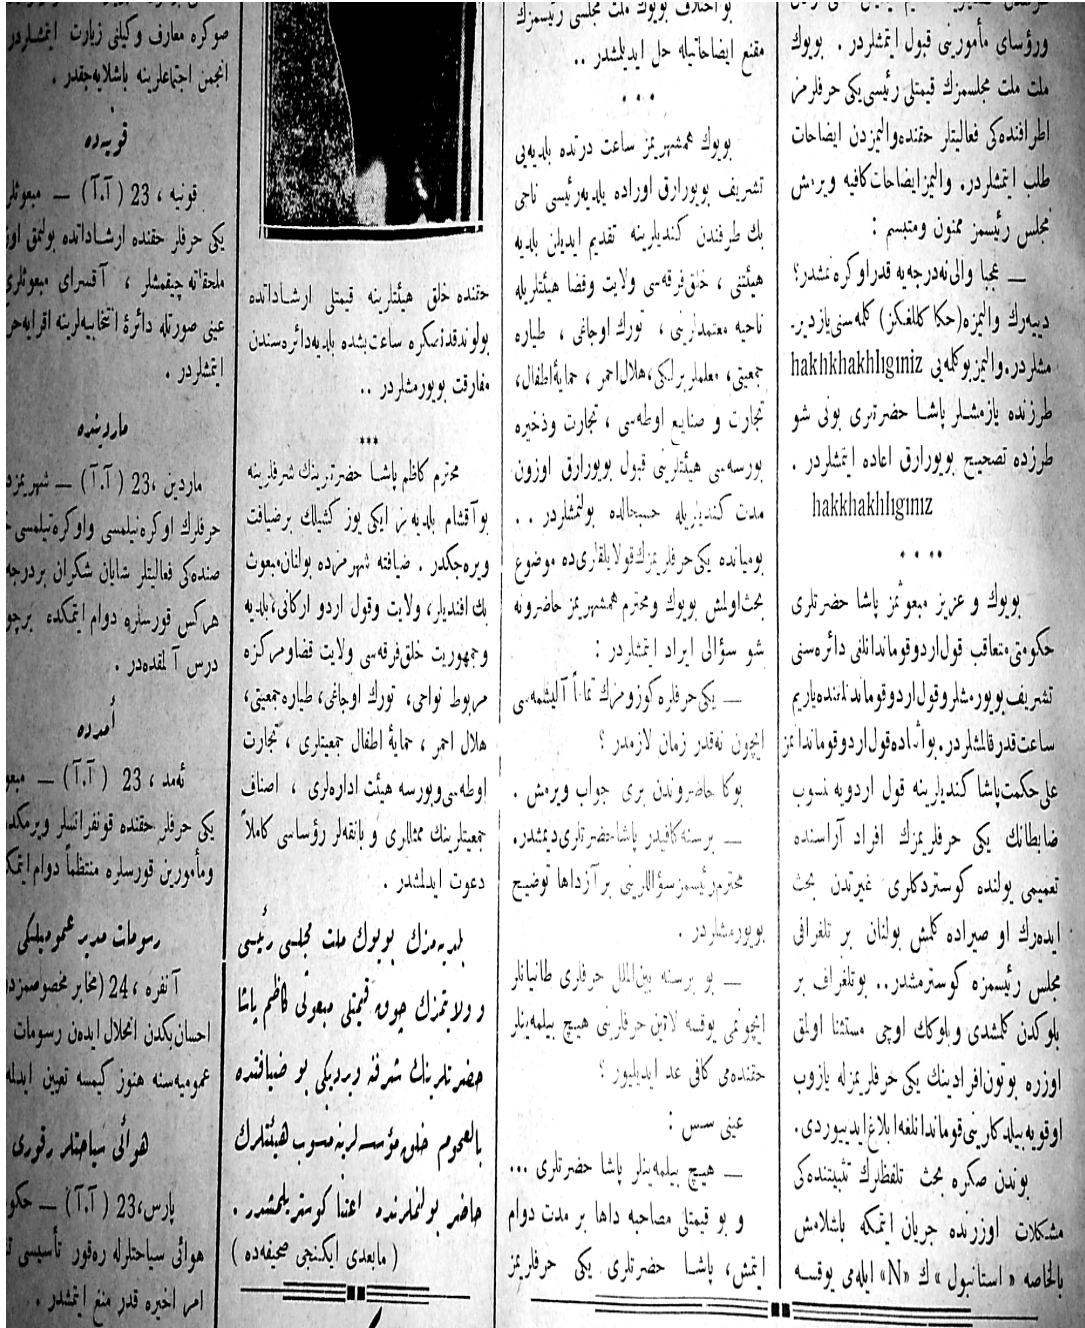 ورؤسای مأمورینی قبول ایتمشلردر . بویوك
ملت ملت مجلسمزك قیمتلی رئیسی یكی حرفلرمز
اطرافنده‌كی فعالیتلر حقنده والیمزدن ایضاحات
طلب ایتمشلردر. والیمز ایضاحات كافیه ویرمش
مجلس رئیسمز ممنون ومتبسم :
— عجبا والی نه درجه‌یه قدر اوكره‌نمشدر؟
دییه‌رك والیمزه (حكا كللغكز) كلمه‌سنی یازدیر-
مشلردر. والیمز بو كلمه‌یی hakhkhakhlıgınız
طرزنده یازمشلر پاشا حضرتلری بونی شو
طرزده تصحیح بویورارق اعاده ایتمشلردر .
hakkhakhlıgınız
• • • •
بویوك و عزیز مبعوثمز پاشا حضرتلری
حكومتی متعاقب قول‌اردو قوماندانلغی دائره‌سنی
تشریف بویورمشلر وقول اردو قوماندانلغنده یاریم
ساعت قدر قالمشلردر. بو اثناده قول اردو قوماندانمز
علی حكمت پاشا كندیلرینه قول اردویه منسوب
ضابطانك یكی حرفلریمزك افراد آراسنده
تعمیمی یولنده كوستردكلری غیرتدن بحث
ایده‌رك او صیراده كلمش بولنان بر تلغرافی
مجلس رئیسمزه كوسترمشدر.. بو تلغراف بر
بلوكدن كلمشدی و بلوكك اوچی مستثنا اولمق
اوزره بوتون افرادینك یكی حرفلریمزله یازوب
اوقویه بیلدكلرینی قوماندانلغه ابلاغ ایدییوردی.
بوندن صكره بحث تلفظلرك تثبیتنده‌كی
مشكلات اوزرنده جریان ایتمكه باشلامش
بالخاصه « استانبول » ك «N» ایله‌می یوقسه
بو اختلاف بویوك ملت مجلسی رئیسمزك
مقنع ایضاحاتیله حل ایدیلمشدر ..
• • •
بویوك همشهریمز ساعت درتده بلدیه‌یی
تشریف بویورارق اوراده بلدیه رئیسی ناجی
بك طرفندن كندیلرینه تقدیم ایدیلن بلدیه
هیئتنی ، خلق فرقه‌سی ولایت وقضا هیئتلریله
ناحیه معتمدلرینی ، تورك اوجاغی ، طیاره
جمعیتی، معلملر برلكی، هلال احمر ، حمایهٔ اطفال،
تجارت و صنایع اوطه‌سی ، تجارت وذخیره
بورسه‌سی هیئتلرینی قبول بویورارق اوزون
مدت كندیلریله حسبحالده بولنمشلردر . .
بومیانده یكی حرفلریمزك قولایلقلری ده موضوع
بحث اولمش بویوك ومحترم همشهریمز حاضرونه
شو سؤالی ایراد ایتمشلردر :
— یكی حرفلره كوزومزك تماماً آلیشمه‌سی
ایچون نه‌قدر زمان لازمدر ؟
بوكا حاضروندن بری جواب ویرمش .
— بر سنه كافیدر پاشا حضرتلری دیمشدر.
محترم رئیسمز سؤاللرینی بر آز داها توضیح
بویورمشلردر .
— بو بر سنه بین‌الملل حرفلری طانیانلر
ایچونمی یوقسه لاتین حرفلرینی هیچ بیلمه‌ینلر
حقنده‌می كافی عد ایدیلیور ؟
عینی سس :
— هیچ بیلمه‌ینلر پاشا حضرتلری ...
و بو قیمتلی مصاحبه داها بر مدت دوام
ایتمش، پاشا حضرتلری یكی حرفلریمز
حقنده خلق هیئتلرینه قیمتلی ارشاداتده
بولوندقدن صكره ساعت بشده بلدیه دائره‌سندن
مفارقت بویورمشلردر ..
***
محترم كاظم پاشا حضرتلرینك شرفلرینه
بو آقشام بلدیه‌مز ایكی یوز كشیلك بر ضیافت
ویره‌جكدر . ضیافته شهرمزده بولنان مبعوث
بك افندیلر، ولایت وقول اردو اركانی، بلدیه
وجمهوریت خلق فرقه‌سی ولایت قضا ومركزه
مربوط نواحی، تورك اوجاغی، طیاره جمعیتی،
هلال احمر ، حمایهٔ اطفال جمعیتلری ، تجارت
اوطه‌سی وبورسه هیئت اداره‌لری ، اصناف
جمعیتلرینك ممثللری و بانقه‌لر رؤساسی كاملاً
دعوت ایدلمشدر .
بلدیه‌مزك بویوك ملت مجلسی رئیسی
و ولایتمزك چوق قیمتلی مبعوثی كاظم پاشا
حضرتلرینك شرفنه ویردیكی بو ضیافتده
بالعموم خلق مؤسسه‌لرینه منسوب هیئتلرك
حاضر بولنملرنده اعتنا كوستریلمشدر .
( مابعدی ایكنجی صحیفه‌ده )
صوكره معارف وكیلنی زیارت ایتمشلردر
انجمن اجتماعلرینه باشلایه‌جقدر .
قونیه‌ده
قونیه ، 23 ( آ.آ ) — مبعوثلر
یكی حرفلر حقنده ارشاداتده بولنمق اوزره
ملحقاته چیقمشلر ، آقسرای مبعوثلری
عینی صورتله دائرهٔ انتخابیه‌لرینه
ایتمشلردر .
ماردینده
ماردین ،23 ( آ.آ ) — شهریمزده
حرفلرك اوكره‌نیلمسی واوكره‌تیلمسی
صنده‌كی فعالیتلر شایان شكران بر درجه
هركس قورسلره دوام ایتمكده
درس آلمقده‌در .
أمدده
ئه‌مد ، 23 ( آ.آ ) —
یكی حرفلر حقنده قونفرانسلر ویرمكده
ومأمورین قورسلره منتظماً دوام
رسومات مدیر عمومیلكی
آنقره ،24 (مخابر مخصوصمزدن)
احسان بكدن انحلال ایده‌ن رسومات
عمومیه‌سنه هنوز كیمسه تعیین
هوائی سیاحتلر رقوری
پارس،23 ( آ.آ ) —
هوائی سیاحتلرله ره‌قور تأسیسی
امر اخیره قدر منع ایتمشدر .